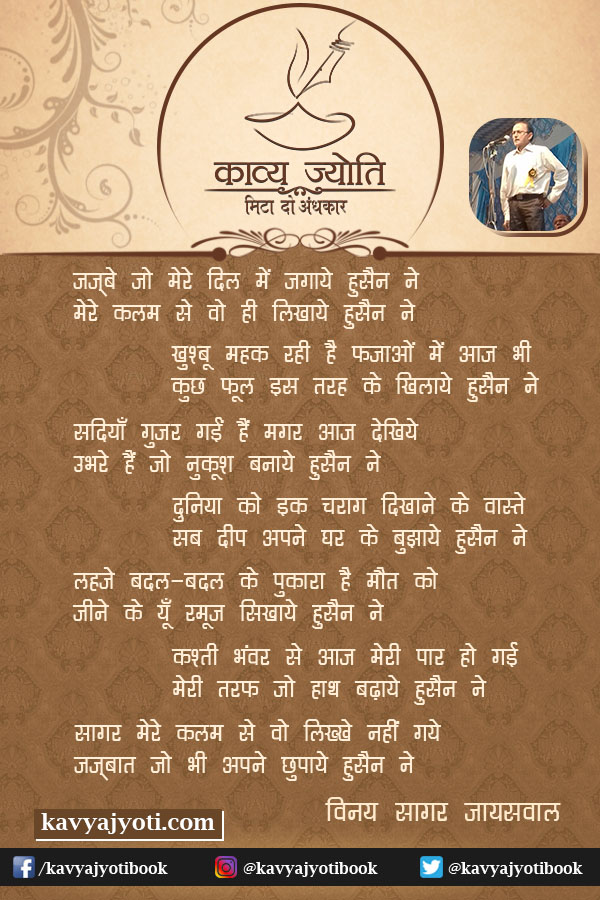 काव्य ज्योति
मिटा दो अंधकार
जज़्बे जो मेरे दिल में जगाये हुसैन ने
मेरे कलम से वो ही लिखाये हुसैन ने
खुश्बू महक रही है फजाओं में आज भी
कुछ फूल इस तरह के खिलाये हुसैन ने
सदियाँ गुजर गईं हैं मगर आज देखिये
उभरे हैं जो नुकूश बनाये हुसैन ने
दुनिया को इक चराग दिखाने के वास्ते
सब दीप अपने घर के बुझाये हुसैन ने
लहजे बदल-बदल के पुकारा है मौत को
जीने के यूँ रमूज सिखाये हुसैन ने
कश्ती भंवर से आज मेरी पार हो गई
मेरी तरफ जो हाथ बढ़ाये हुसैन ने
सागर मेरे कलम से वो लिख्खे नहीं गये
जज़्बात जो भी अपने छुपाये हुसैन ने
विनय सागर जायसवाल
kavyajyoti.com
/kavyajyotibook @kavyajyotibook @kavyajyotibook